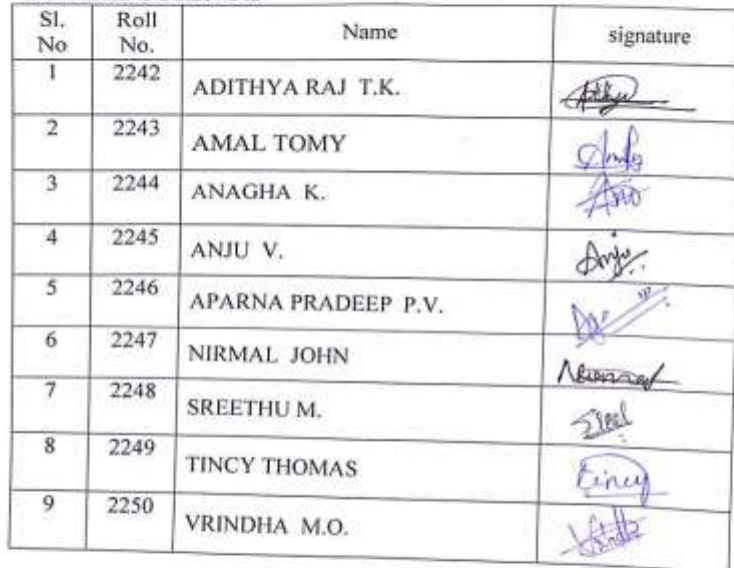 Sl. No Roll No. Name signature
1 2242 ADITHYA RAJ T.K.
2 2243 AMAL TOMY
3 2244 ANAGHA K.
4 2245 ANJU V. Anju
5 2246 APARNA PRADEEP P.V.
6 2247 NIRMAL JOHN
7 2248 SREETHU M.
8 2249 TINCY THOMAS Tincy
9 2250 VRINDHA M.O.